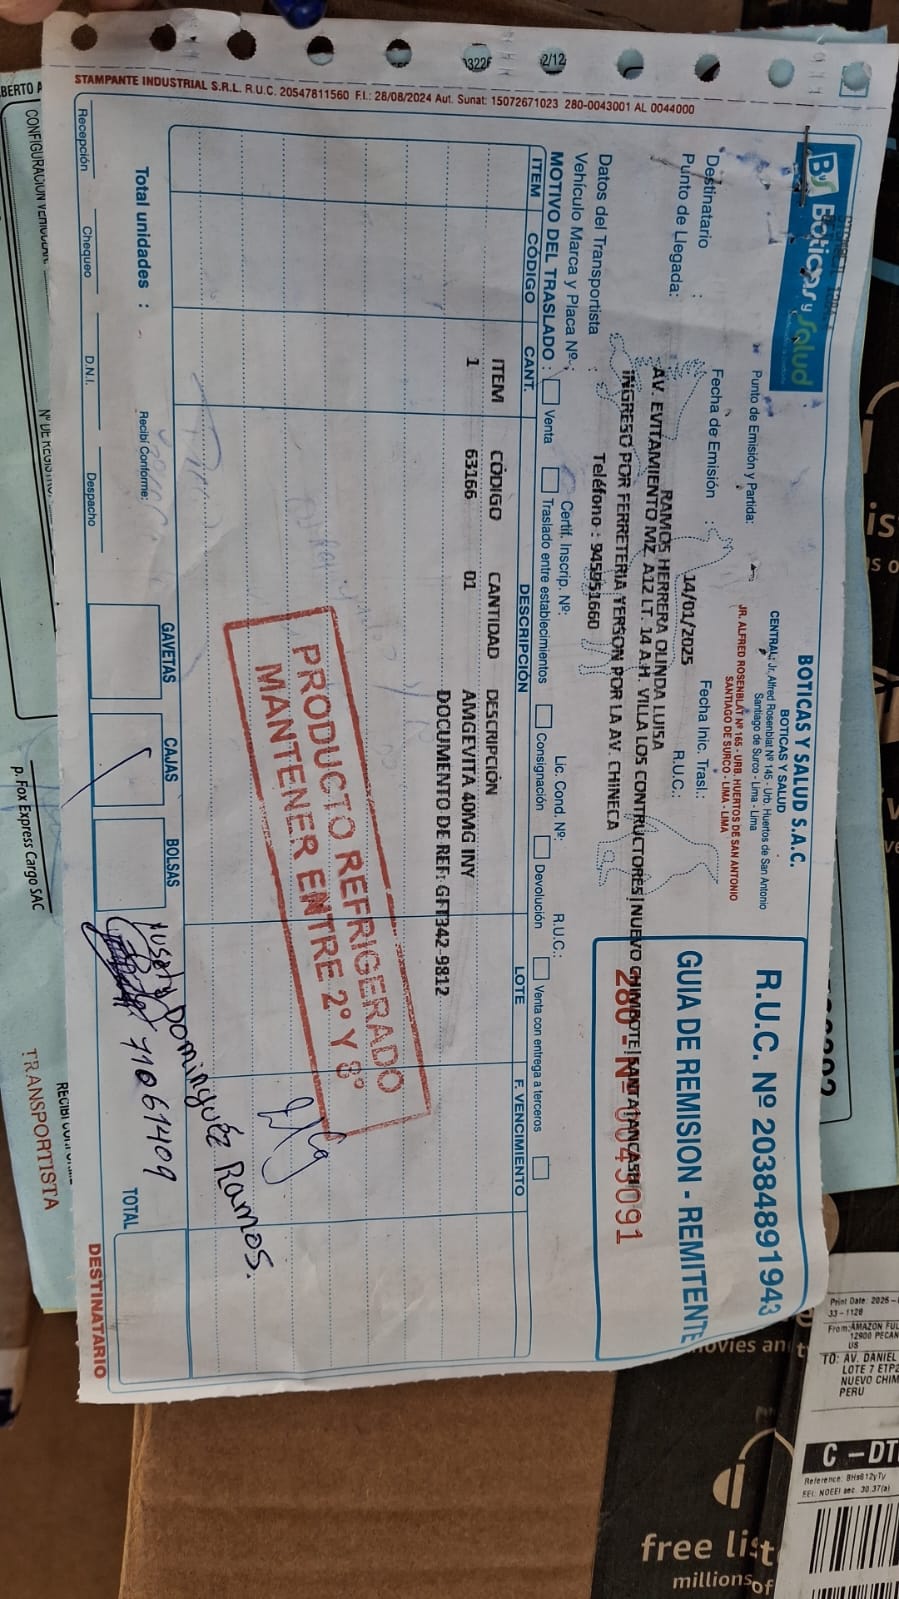 ByS Boticas y Salud
BOTICAS Y SALUD S.A.C.
BOTICAS Y SALUD
CENTRAL: Jr. Alfred Rosenblat Nº 145 - Urb. Huertos de San Antonio
Santiago de Surco - Lima - Lima
Punto de Emisión y Partida:
JR. ALFRED ROSENBLAT Nº 165 - URB. HUERTOS DE SAN ANTONIO
SANTIAGO DE SURCO - LIMA - LIMA
R.U.C. Nº 20384891943
GUIA DE REMISION - REMITENTE
280 - Nº 0043091
Fecha de Emisión : 14/01/2025 Fecha Inic. Trasl.:
Destinatario : RAMOS HERRERA OLINDA LUISA R.U.C.:
Punto de Llegada: AV. EVITAMIENTO MZ. A12 LT. 14 A.H. VILLA LOS CONTRUCTORES|NUEVO CHIMBOTE|SANTA|ANCASH
INGRESO POR FERRETERIA YERSON POR LA AV. CHINECA
Datos del Transportista : Teléfono : 945951660
Vehículo Marca y Placa Nº: Certif. Inscrip. Nº: Lic. Cond. Nº: R.U.C.:
MOTIVO DEL TRASLADO : Venta Traslado entre establecimientos Consignación Devolución Venta con entrega a terceros
ITEM CÓDIGO CANT. DESCRIPCIÓN LOTE F. VENCIMIENTO
ITEM CÓDIGO CANTIDAD DESCRIPCIÓN
1 63166 01 AMGEVITA 40MG INY
DOCUMENTO DE REF: GFT342-9812
PRODUCTO REFRIGERADO
MANTENER ENTRE 2° Y 8°
Domínguez Ramos.
71061409
GAVETAS CAJAS BOLSAS
Total unidades : Recibí Conforme: TOTAL
Recepción Chequeo D.N.I. Despacho
DESTINATARIO
STAMPANTE INDUSTRIAL S.R.L. R.U.C. 20547811560 F.I.: 28/08/2024 Aut. Sunat: 15072671023 280-0043001 AL 0044000
2/12
CONFIGURACIÓN VEHICULAR
p. Fox Express Cargo SAC
TRANSPORTISTA
Print Date: 2025-
33-1128
From:AMAZON FUL
12900 PECAN
US
TO: AV. DANIEL
LOTE 7 ETP2
NUEVO CHIM
PERU
C - DT
Reference: BHs612yTy
EEI: NOEEI sec. 30.37(a)
free list
millions of